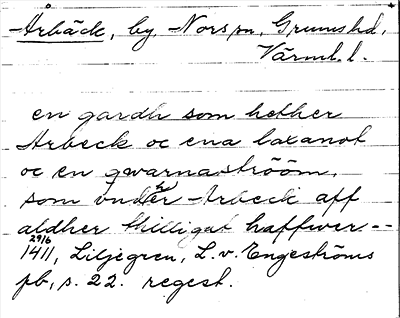 Årbäck, by, Nors sn, Grums hd,
Värml. l.
en gardh som hether
Arbeck oc ena laxanot
oc en qwarnaström,
som vnder Arbeck aff
aldher thilligat haffwer --
29/6
1411, Liljegren, L. v. Engeströms
pb, s. 22. regest.